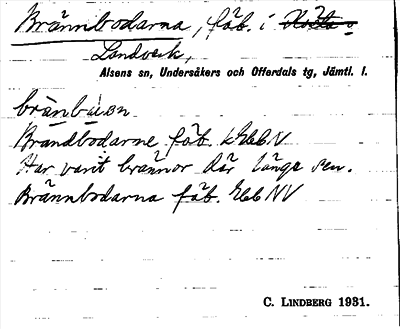 Brännbodarna, fäb. i
Landverk,
Alsens sn, Undersåkers och Offerdals tg, Jämtl. l.
Brandbodarne fäb.
Har varit brännor där länge sen.
Brännbodarna fäb. NV
C. LINDBERG 1931.